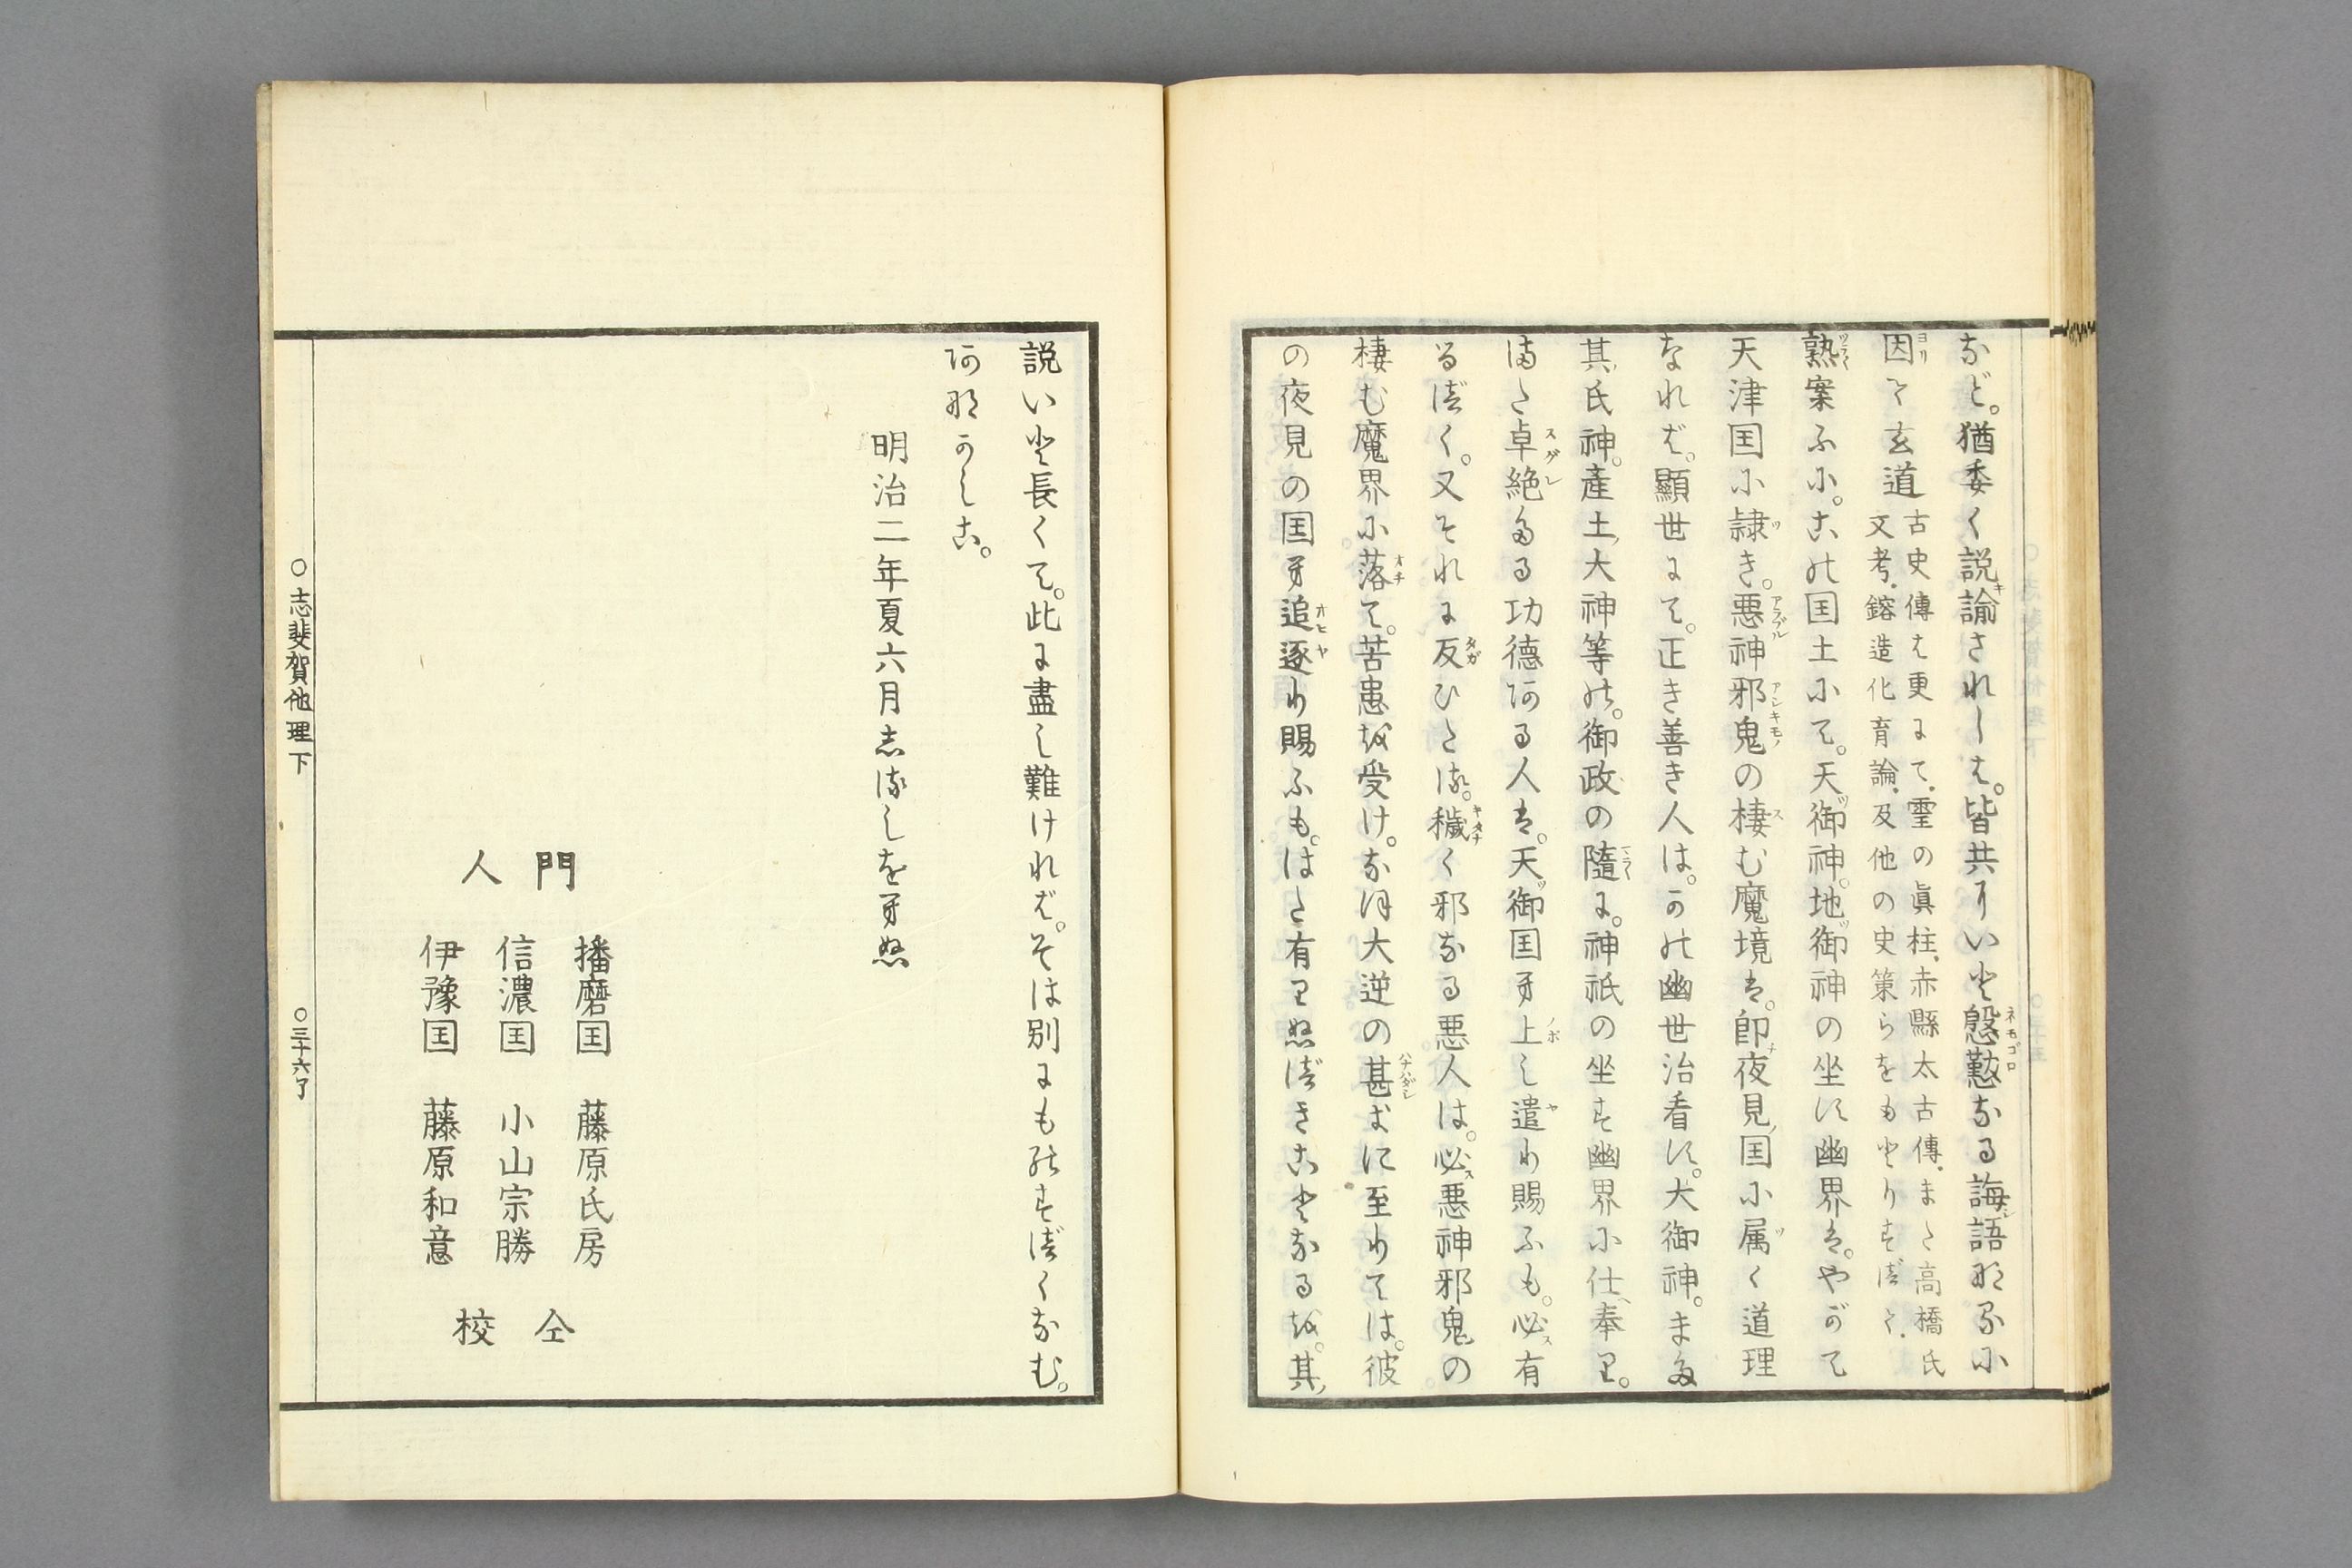 など。猶委く説諭されしは。皆共にいと慇懃なる誨語那るに
因て玄道
古史傳は更にて。霊の眞柱。赤縣太古傳。また高橋氏
文考。鎔造化育論。及他の史策らをもとりすべて。
熟案ふに。此国土にて。天御神。地御神の坐す幽界は。やがて
天津国に隷き。悪神邪鬼の棲む魔境は。即夜見国に属く道理
なれば。顯世にて。正き善き人は。かの幽世治看す。大御神。また
其氏神。産土大神等の。御政の隨に。神祇の坐す幽界に仕奉り。
また卓絶たる功徳ある人は。天御国に上し遣り賜ふも。必有
るべく。又それに反ひたる。穢く邪なる悪人は。必悪神邪鬼の
棲む魔界に落て。苦患を受け。なほ大逆の甚だに至りては。彼
の夜見の国に追逐り賜ふも。はた有りぬべきことなるを。其
説いと長くて。此に盡し難ければ。そは別にものすべくなむ。
阿那かしこ。
明治二年夏六月志るしをはぬ
門人
播磨国 藤原氏房
信濃国 小山宗勝
伊豫国 藤原和意
仝校
○志斐賀他理下 ○三十六了